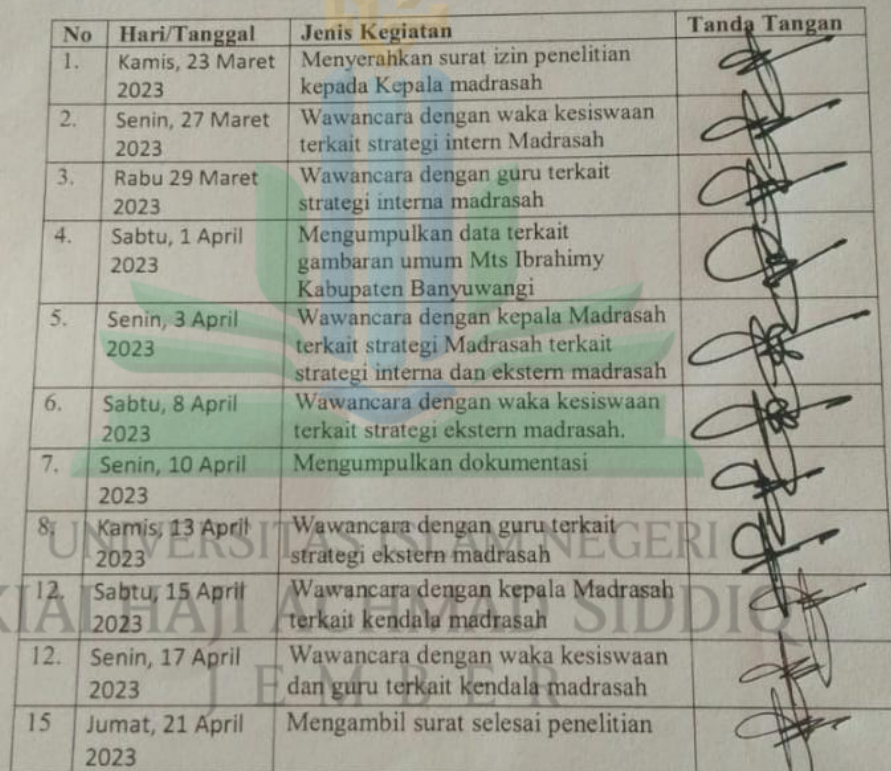 No Hari/Tanggal Jenis Kegiatan Tanda Tangan
1. Kamis, 23 Maret Menyerahkan surat izin penelitian
2023 kepada Kepala madrasah
2. Senin, 27 Maret Wawancara dengan waka kesiswaan
2023 terkait strategi intern Madrasah
3. Rabu 29 Maret Wawancara dengan guru terkait
2023 strategi interna madrasah
4. Sabtu, 1 April Mengumpulkan data terkait
2023 gambaran umum Mts Ibrahimy
Kabupaten Banyuwangi
5. Senin, 3 April Wawancara dengan kepala Madrasah
2023 terkait strategi Madrasah terkait
strategi interna dan ekstern madrasah
6. Sabtu, 8 April Wawancara dengan waka kesiswaan
2023 terkait strategi ekstern madrasah.
7. Senin, 10 April Mengumpulkan dokumentasi
2023
8. Kamis, 13 April Wawancara dengan guru terkait
2023 strategi ekstern madrasah
12. Sabtu, 15 April Wawancara dengan kepala Madrasah
2023 terkait kendala madrasah
12. Senin, 17 April Wawancara dengan waka kesiswaan
2023 dan guru terkait kendala madrasah
15 Jumat, 21 April Mengambil surat selesai penelitian
2023
UNIVERSITAS ISLAM NEGERI
KIAI HAJI ACHMAD SIDDIQ
JEMBER